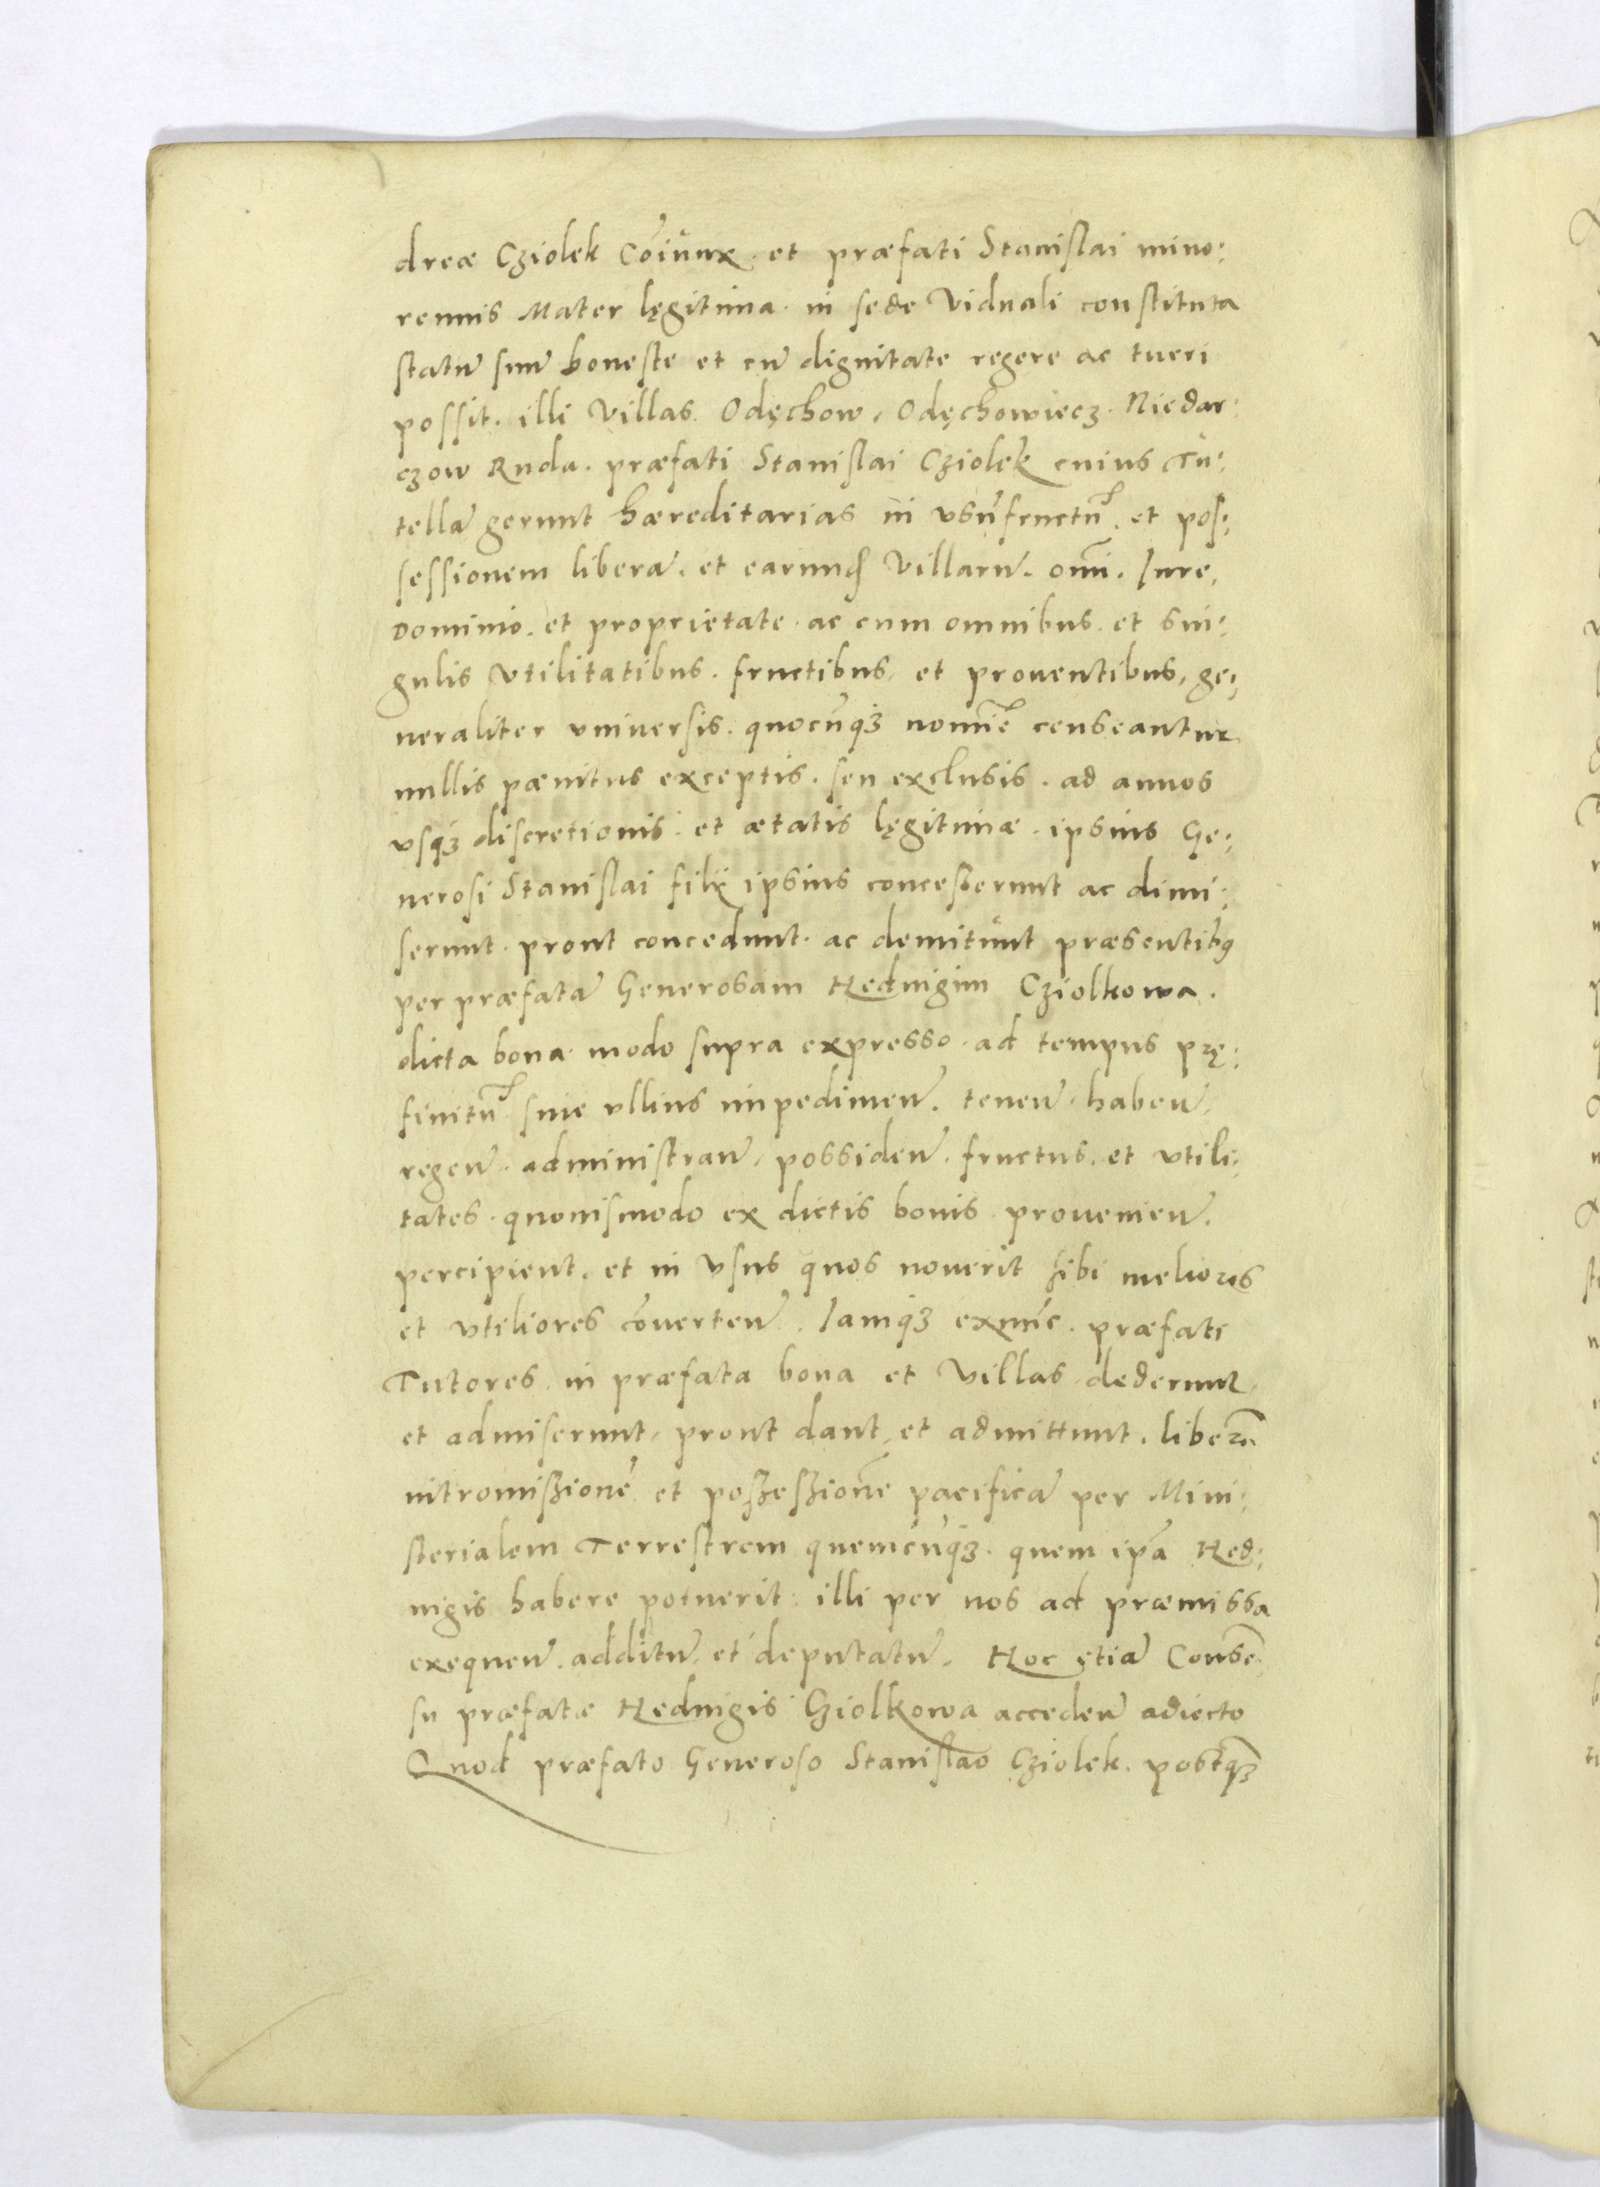 dreæ Cziolek Cõiunx. et præfati Stanislai mino:
rennis Mater lęgitima. in sede Viduali constituta
statū suū honeste et cū dignitate regere ac tueri
possit. illi Villas Odęchow, Odęchowiecz. Niedar:
czow Ruda. præfati Stanislai Cziolek cuius Tu:
tellā gerunt hæreditarias in vsūfructū. et pos:
sessionem liberā. et earund Villarū. omī. Iure,
Dominio. et proprietate ac cum omnibus. et sin:
gulis vtilitatibus. fructibus, et prouentibus, ge:
neraliter vniuersis. quocūqꝫ nomīe censeantur
nullis pænitus exceptis. seu exclusis. ad annos
vsqꝫ discretionis. et ætatis lęgitimæ. ipsius Ge:
nerosi Stanislai filii ipsius concesserunt ac dimi:
serunt. prout concedunt. ac demitunt præsentibꝰ
per præfatā Generosam Heduigim Cziolkowa.
dicta bona modo supra expresso ad tempus prę:
finitū sine ullius impedimen̄. tenen̄. haben̄,
regen̄. administran̄, possiden̄. fructus. et vtili:
tates. quouismodo ex dictis bonis prouenien̄.
percipient. et in vsus quos nouerit sibi meliores
et vtiliores cōuerten̄. Iamqꝫ exnūc. præfati
Tutores. in præfata bona et Villas dederunt,
et admiserunt, prout dant, et admittunt. liberā
intromißionē et poßeßionē pacificā per Mini:
sterialem Terrestrem quemcūqꝫ. quem ipā Hed:
uigis habere potuerit. illi per nos ad præmissa
exequen̄. additū. et deputatū. Hoc etiā Consē:
su præfatæ Heduigis Cziolkowa acceden̄ adiecto
Quod præfato Generoso Stanislao Cziolek. postqꝫ